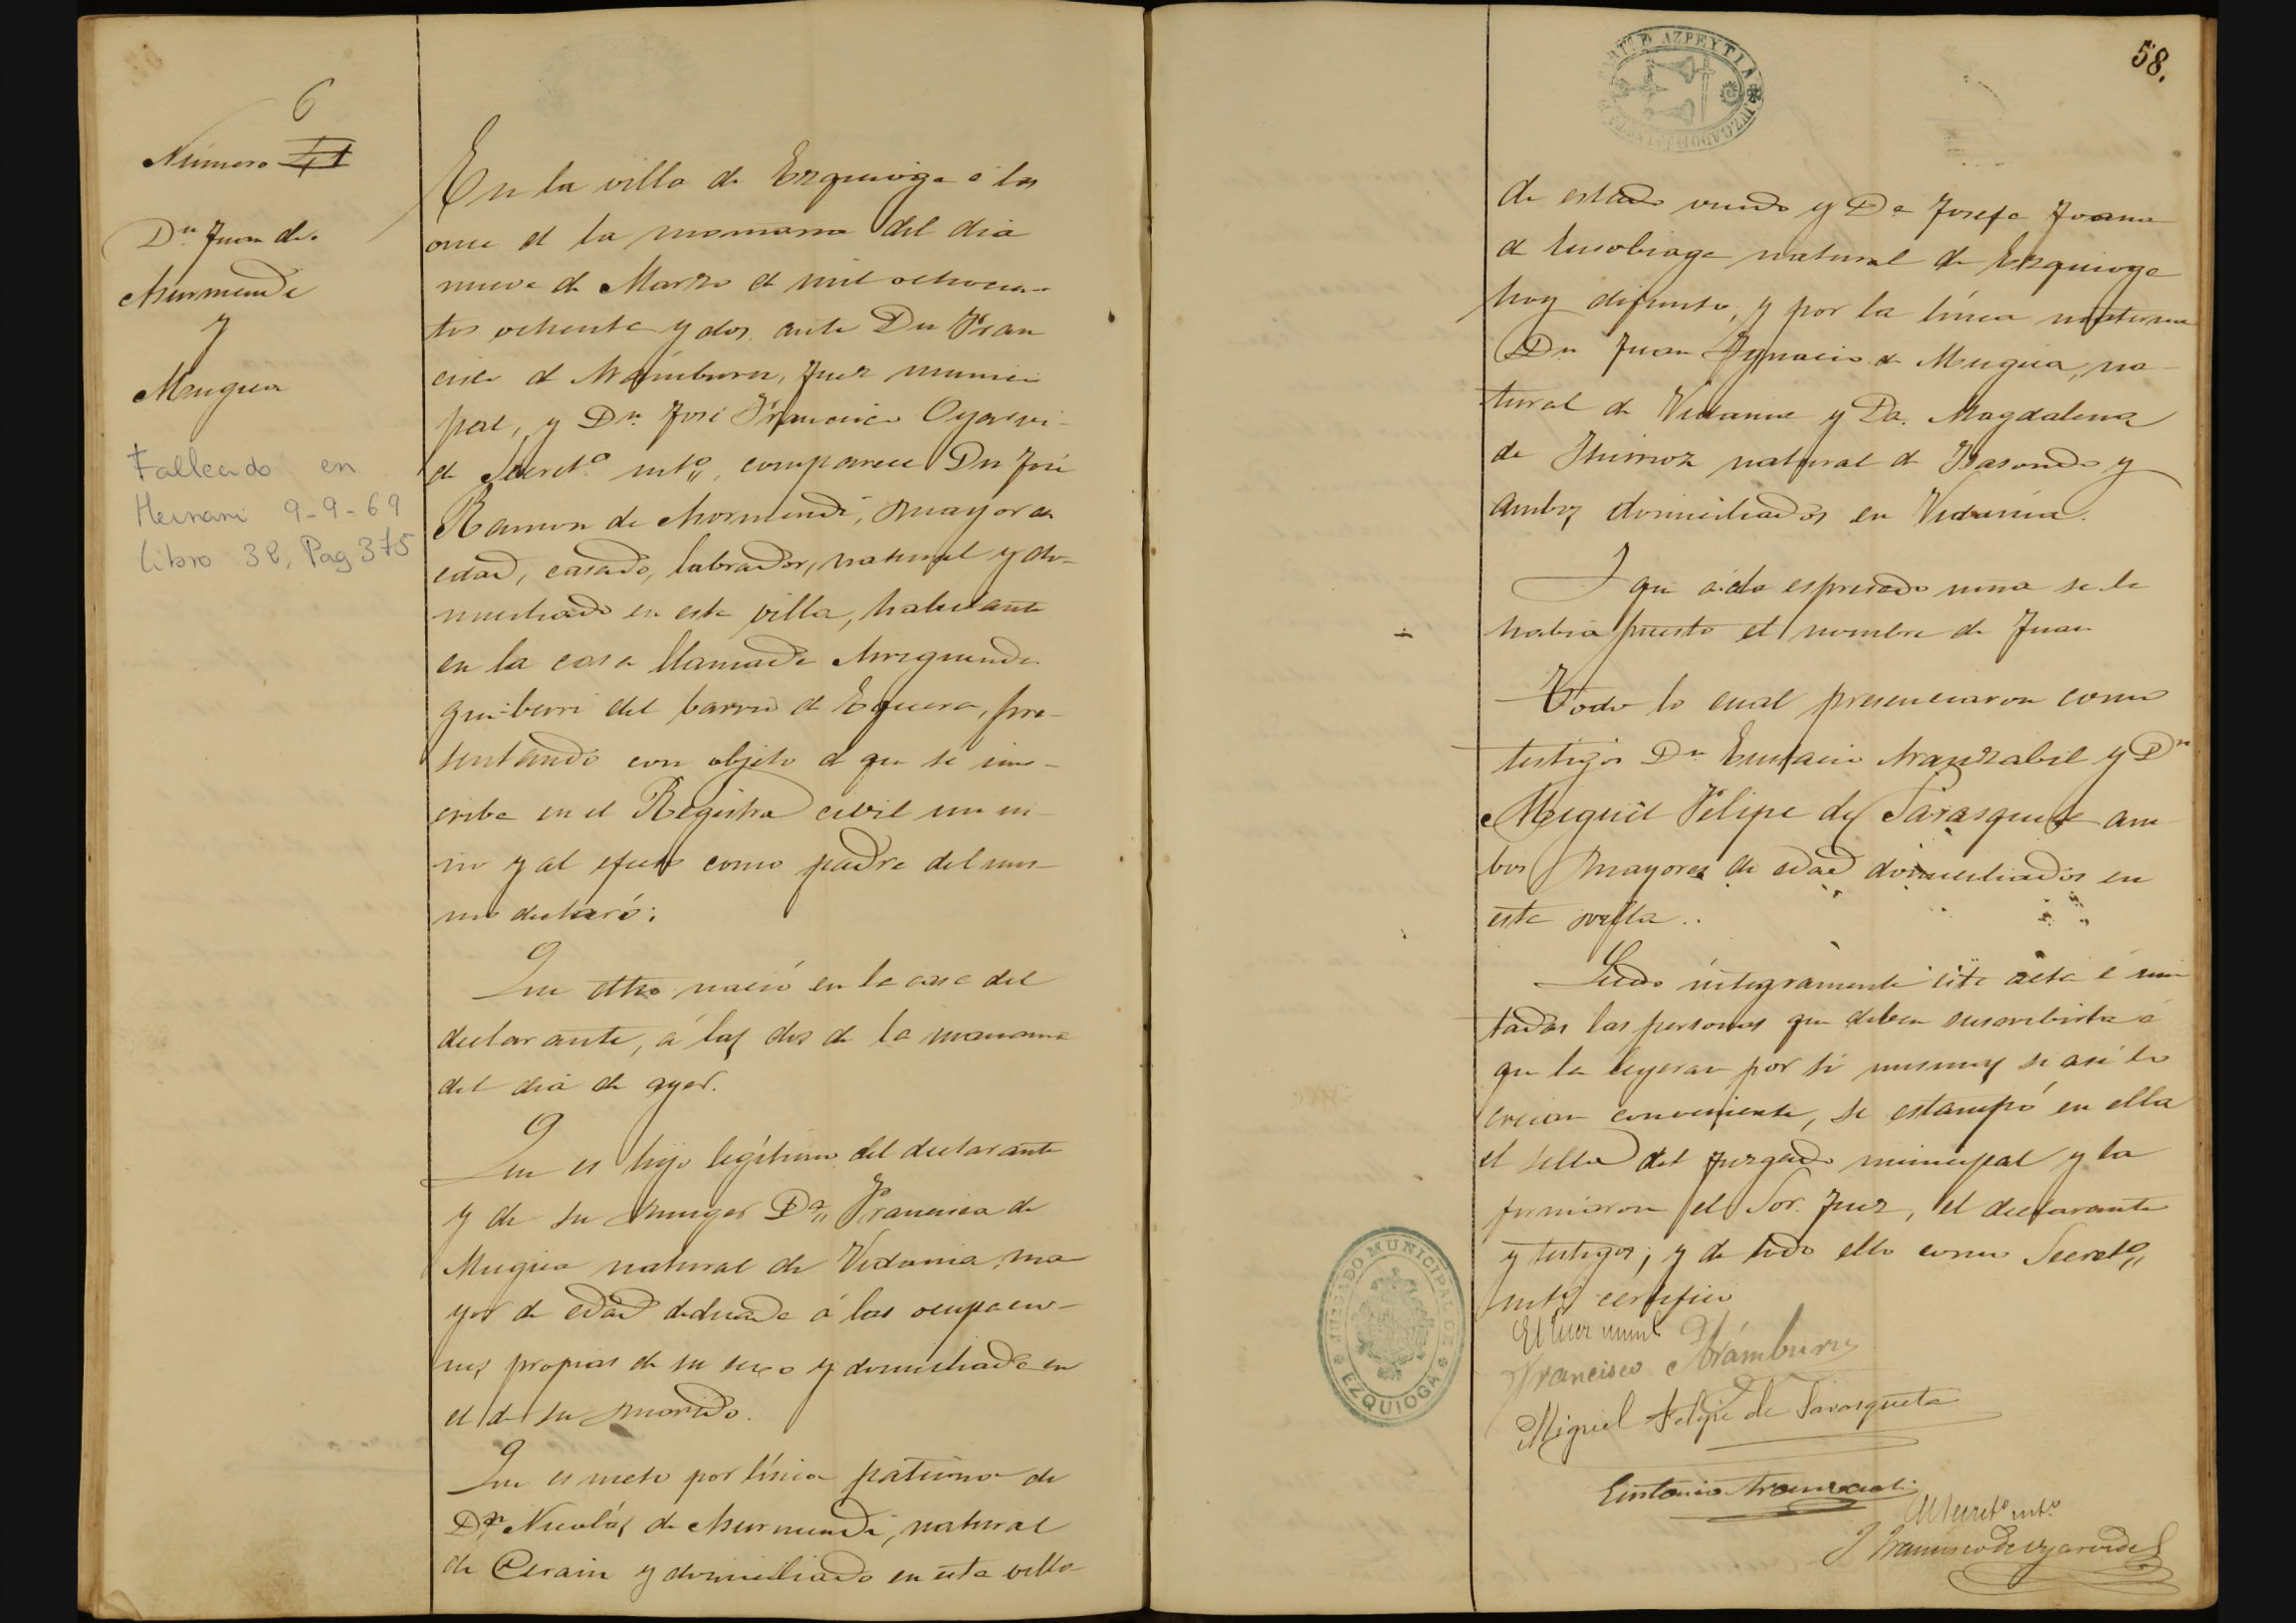 6
Número 41
Dn. Juan de
Asurmendi
y
Mugica
Fallecido en
Hernani 9-9-69
Libro 32, Pag 375
En la villa de Ezquioga á las
once de la mañana del dia
nueve de Marzo de mil ochocien-
tos ochenta y dos, ante Dn Fran
cisco de Arámburu, Juez munici
pal, y Dn. José Francisco Oyarvi-
de Secret.o int.o, comparece Dn José
Ramon de Asurmendi, mayor de
edad, casado, labrador, natural y do-
miciliado en esta villa, habitante
en la casa llamada
gui-berri del barrio de Eguera, pre-
sentando con objeto de que se ins-
criba en el Registro civil un ni-
ño y al efecto como padre del mis-
mo declaró:
Que dho nació en la casa del
declarante, á las dos de la manana
del dia de ayer.
Que es hijo legítimo del declarante
y de su muger Da. Francisca de
Mugica natural de Vidania, ma-
yor de edad dedicada á las ocupacio-
nes propias de su sexo y domiciliada en
el de su marido.
Que es nieto por línea paterna de
Dn. Nicolás de Asurmendi, natural
de Cerain y domiciliado en esta villa
58.
PARTIDO AZPEYTIA
JUZGADO MUNICIPAL
de estado viudo y Da Josefa Joana
de natural de Ezquioga
hoy difunta, y por la línea materna
Dn Juan Ygnacio de Mugica, na-
tural de Vidania y Da. Magdalena
de natural de y
ambos domiciliados en Vidania.
Y que á do espresado nino se le
habia puesto el nombre de Juan
Todo lo cual presenciaron como
testigos Dn Eustacio Aranzabal y Dn
Miguel Felipe de Sarasqueta am-
bos mayores de edad domiciliados en
esta villa.
Leida integramente este acta é invi
tadas las personas que deben suscribirla á
que la leyeran por sí mismas si asi lo
creian conveniente, se estampó en ella
el sello del Juzgado municipal y la
firmaron el Sor. Juez, el declarante
y testigos; y de todo ello como Secret.o
int.o certifico
El Juez munl
Francisco Arámburu
Miguel Felipe de Sarasqueta
Eustacio Aranzabal
El Secret.o int.o
J Francisco de Oyarvide
JUZGADO MUNICIPAL DE
EZQUIOGA